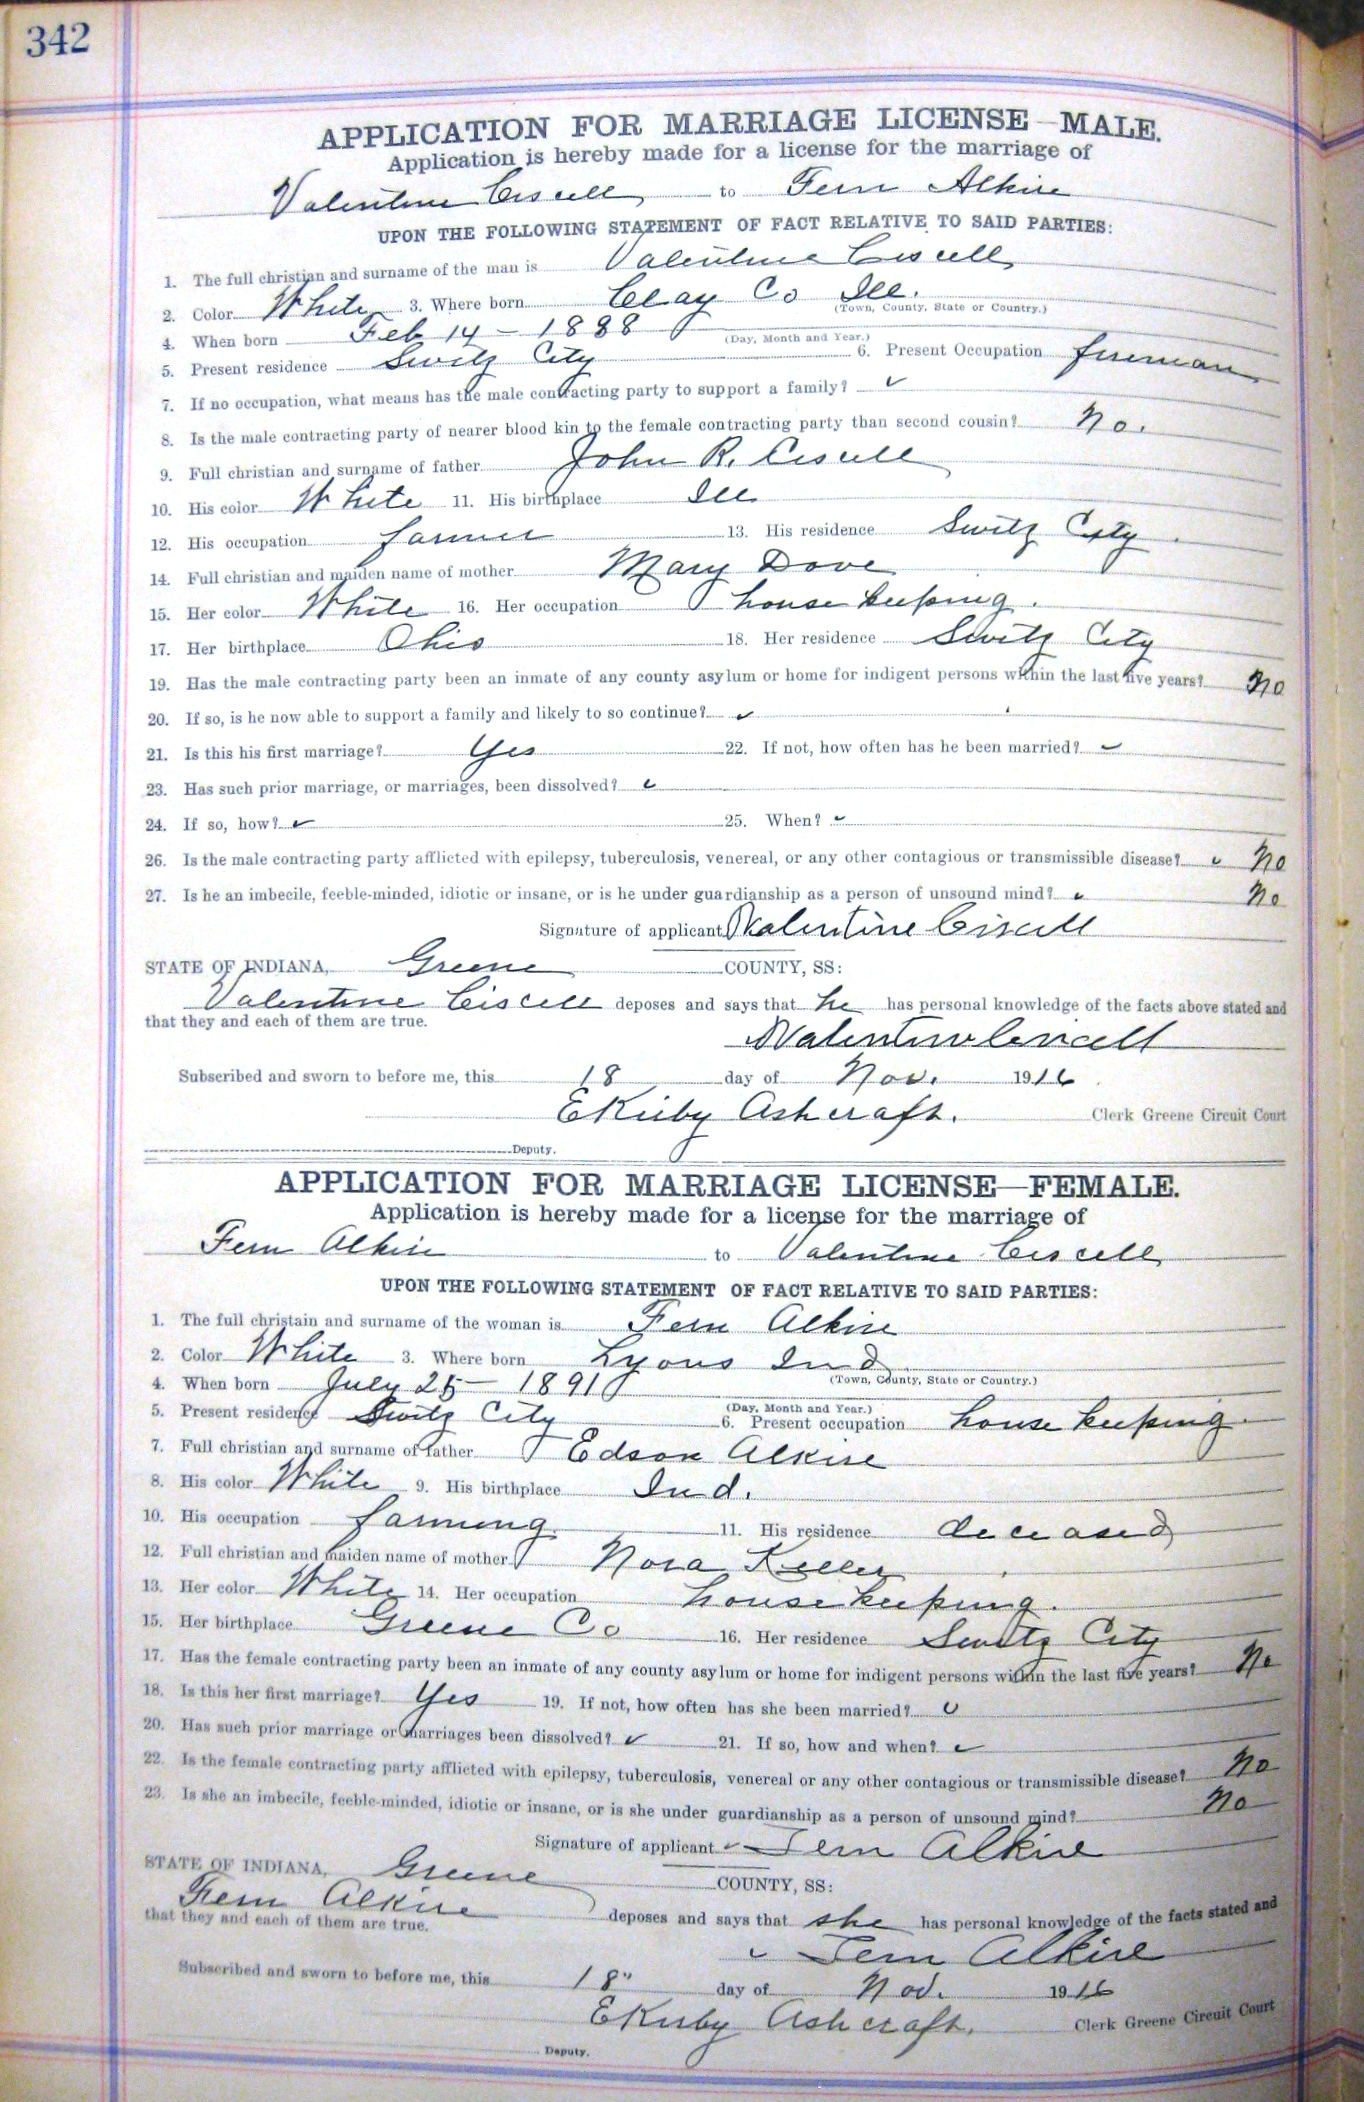 342
APPLICATION FOR MARRIAGE LICENSE—MALE.
Application is hereby made for a license for the marriage of
Valentine Ciscell to Fern Alkire
UPON THE FOLLOWING STATEMENT OF FACT RELATIVE TO SAID PARTIES:
1. The full christian and surname of the man is Valentine Ciscell
2. Color White 3. Where born Clay Co Ill.
(Town, County, State or Country.)
4. When born Feb 14 - 1888
(Day, Month and Year.)
5. Present residence Switz City 6. Present Occupation fireman
7. If no occupation, what means has the male contracting party to support a family? ✓
8. Is the male contracting party of nearer blood kin to the female contracting party than second cousin? No.
9. Full christian and surname of father John R. Ciscell
10. His color White 11. His birthplace Ill
12. His occupation farmer 13. His residence Switz City.
14. Full christian and maiden name of mother Mary Dove
15. Her color White 16. Her occupation house keeping.
17. Her birthplace Ohio 18. Her residence Switz City
19. Has the male contracting party been an inmate of any county asylum or home for indigent persons within the last five years? No
20. If so, is he now able to support a family and likely to so continue? ✓
21. Is this his first marriage? Yes 22. If not, how often has he been married? ✓
23. Has such prior marriage, or marriages, been dissolved? ✓
24. If so, how? ✓ 25. When? ✓
26. Is the male contracting party afflicted with epilepsy, tuberculosis, venereal, or any other contagious or transmissible disease? ✓ No
27. Is he an imbecile, feeble-minded, idiotic or insane, or is he under guardianship as a person of unsound mind? ✓ No
Signature of applicant Valentine Ciscell
STATE OF INDIANA, Greene COUNTY, SS:
Valentine Ciscell deposes and says that he has personal knowledge of the facts above stated and
that they and each of them are true.
Valentine Ciscell
Subscribed and sworn to before me, this 18 day of Nov. 1916
E Kirby Ashcraft. Clerk Greene Circuit Court
Deputy.
APPLICATION FOR MARRIAGE LICENSE—FEMALE.
Application is hereby made for a license for the marriage of
Fern Alkire to Valentine Ciscell
UPON THE FOLLOWING STATEMENT OF FACT RELATIVE TO SAID PARTIES:
1. The full christain and surname of the woman is Fern Alkire
2. Color White 3. Where born Lyons Ind
(Town, County, State or Country.)
4. When born July 25 - 1891
(Day, Month and Year.)
5. Present residence Switz City 6. Present occupation house keeping.
7. Full christian and surname of father Edson Alkire
8. His color White 9. His birthplace Ind.
10. His occupation farming 11. His residence deceased
12. Full christian and maiden name of mother Nora Keller
13. Her color White 14. Her occupation house keeping.
15. Her birthplace Greene Co 16. Her residence Switz City
17. Has the female contracting party been an inmate of any county asylum or home for indigent persons within the last five years? No
18. Is this her first marriage? Yes 19. If not, how often has she been married? ✓
20. Has such prior marriage or marriages been dissolved? ✓ 21. If so, how and when? ✓
22. Is the female contracting party afflicted with epilepsy, tuberculosis, venereal or any other contagious or transmissible disease? No
23. Is she an imbecile, feeble-minded, idiotic or insane, or is she under guardianship as a person of unsound mind? No
Signature of applicant ✓ Fern Alkire
STATE OF INDIANA, Greene COUNTY, SS:
Fern Alkire deposes and says that she has personal knowledge of the facts stated and
that they and each of them are true.
✓ Fern Alkire
Subscribed and sworn to before me, this 18" day of Nov. 1916
E Kirby Ashcraft. Clerk Greene Circuit Court
Deputy.